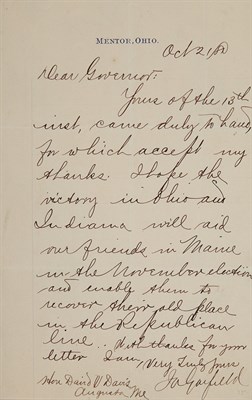 MENTOR, OHIO.
Oct 21/80
Dear Governor:
Yours of the 13th
inst, came duly to hand
for which accept my
thanks. I hope the
victory in Ohio and
Indiana will aid
our friends in Maine
in the November election
and enable them to
recover their old place
in the Republican
line. With thanks for your
letter I am,
Very Truly Yours
J A Garfield
Hon Davis
Augusta Me